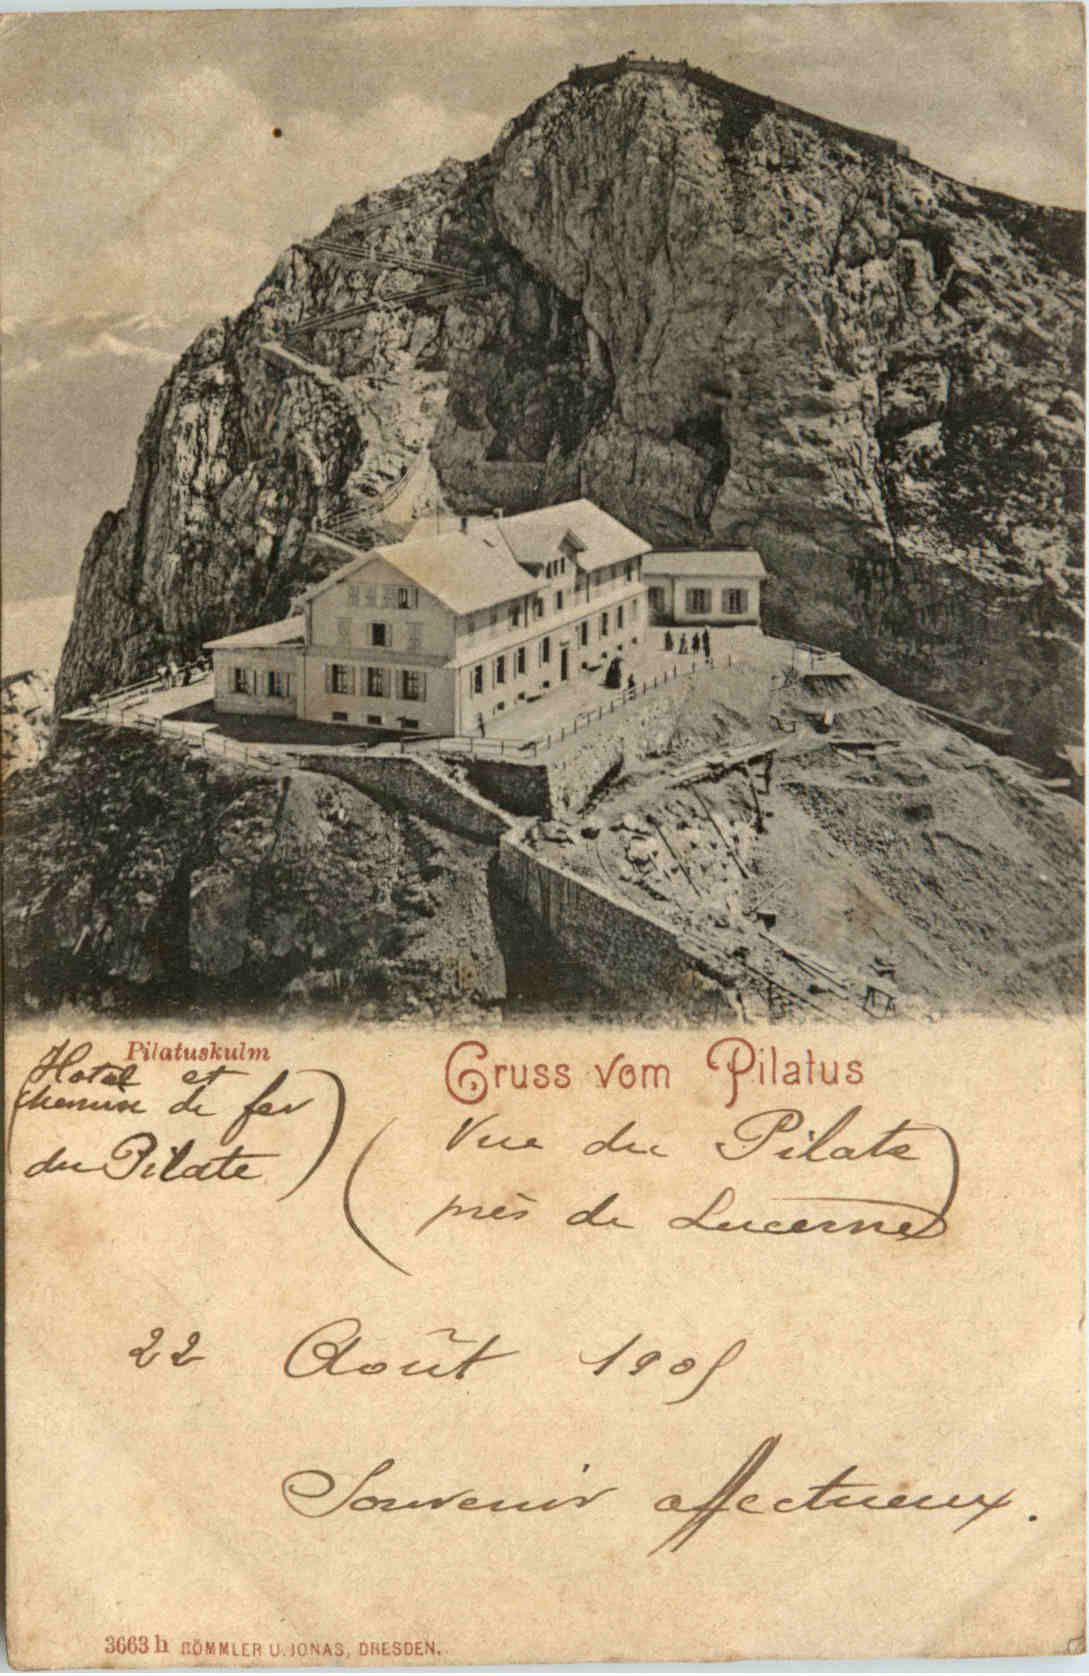 Pilatuskulm
Gruss vom Pilatus
Hotel et
chemin de fer
du Pilate
Vue du Pilate
près de Lucerne
22 Août 1905
Souvenir affectueux.
3663 h RÖMMLER U. JONAS, DRESDEN.